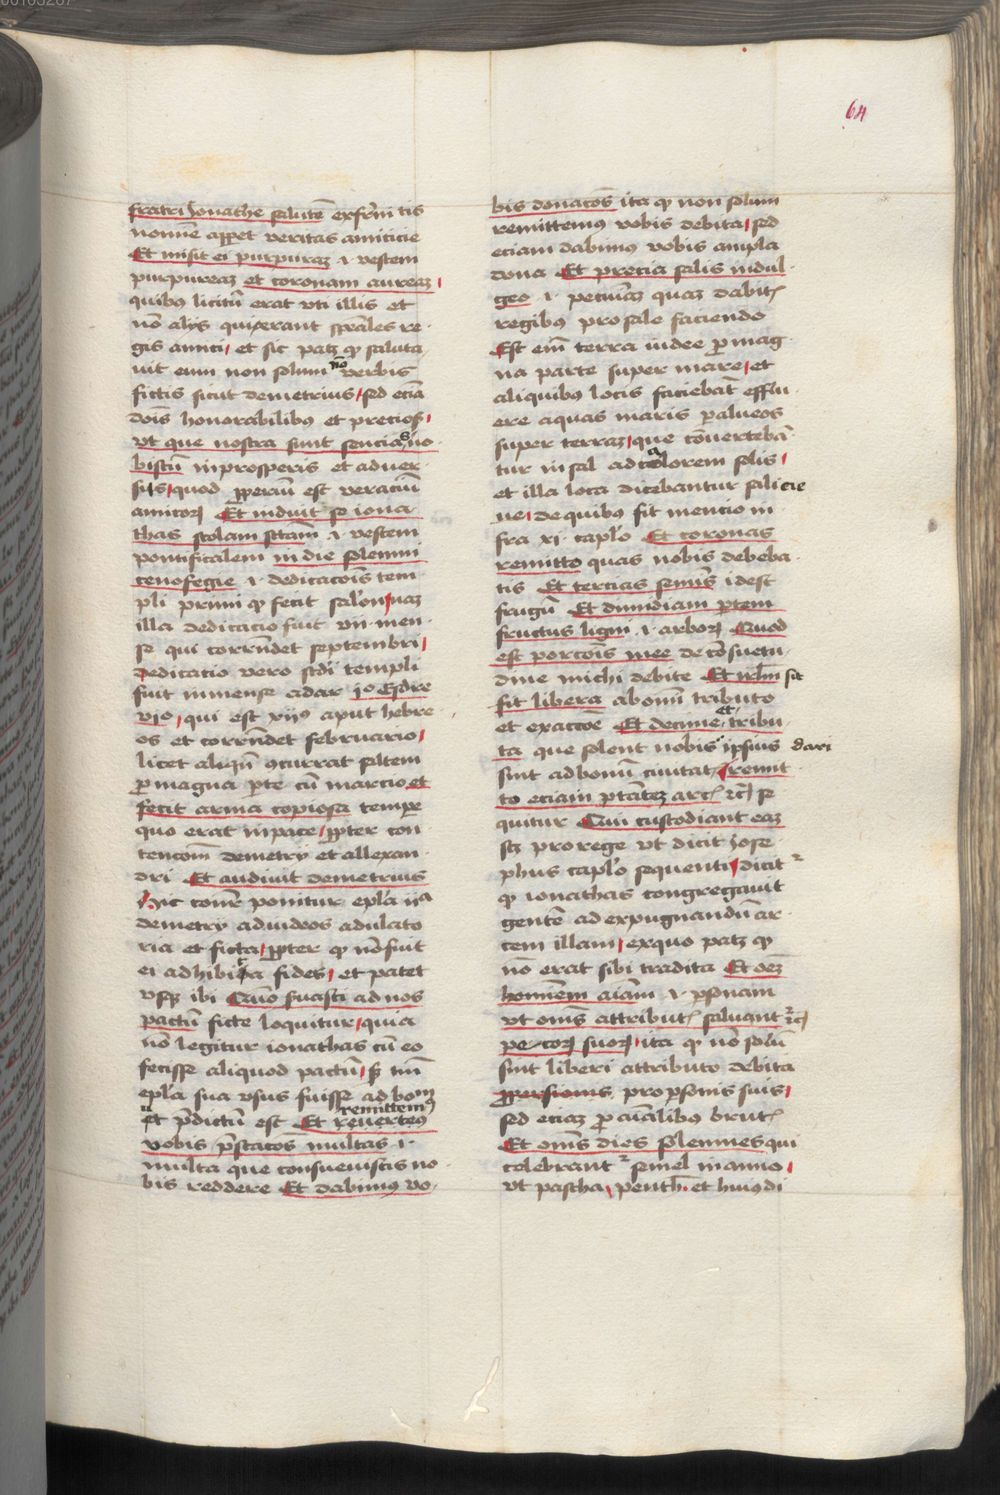 64
fratri Jonathe salutē
nonne apꝑet veritas amiticie
Et misit ei purpurā ⁊ vestem
purpureaꝫ et coronam aureaꝫ
quibꝰ licitū erat vti illis et
nō alijs qui erant spāles re
gis amici et sic patꝫ qꝫ saluta
uit eum non solum nō verbis
fictis sicut demetrius sed eciā
dōis honorabilibꝰ et preciosꝭ
vt que nostra sunt senciaˢ no
biscū in prosperis et aduer
sis quod ꝓpriū est veraciū
amicoꝝ Et induit se iona
thas stolam sctām .i. vestem
pontificalem in die solemni
cenofegie .i. dedicacōis tem
pli primi qꝫ fecit salon naꝫ
illa dedicacio fuit vii men
se qui corrn̄det septembri
dedicatio vero scdi templi
fuit in mense adar
qui est xijꝰ aput hebre
os et corrn̄det februario
licet aliqn̄ ꝯcurrat saltem
ꝓ magna ꝑte cū marcio et
fecit arma copiosa tempe
quo erat in pace ꝓpter con
tencōm demetrij et allexan
dri Et audiuit demetrius
Hic cōnr ponitur epl̄a ijᵃ
demetrij ad iudeos adulato
ria et ficta ꝓpter qꝫ nō fuit
ei adhibita fides et patet
vsqꝫ ibi Qūo suasti ad nos
pactū ficte loquitur quia
nō legitur ionathas cū eo
fecisse aliquod pactū sꝫ in
epl̄a sua vsus fuisse ad bom
ut p̄dictū est Et reuertēꝰ remittemꝰ
vobis p̄stacōs multas .i.
multa que consueuistis no
bis reddere Et dabimꝰ vo
bis donacōs ita qꝫ non solum
remittemꝰ vobis debita sed
eciam dabimꝰ vobis ampla
dona Et precia salis indul
geo .i. pecuniāꝫ quaꝫ dabitꝭ
regibꝰ pro sale faciendo
Est eīn terra iudee ꝓ mag
na parte super mare et
aliquibus locis faciebāt efflu
ere aquas maris ꝑ alueos
super terraꝫ que cōuertebā
tur in sal ad calorem solis
et illa loca dicebantur salicie
ne de quibꝰ fit mencio in
fra xi caplo Et coronas
remitto quas nobis debeba
tis Et tercias semīs idest
frugū Et dimidiam ꝑtem
fructus ligni .i. arboꝝ Quod
est porcōis mee de cōsuetu
dine michi debite Et irlm̄ sit
sit libera ab omī tributo
et exaccōe Et decime et tribu
ta que solent nobis ipsius dari
sint ad bonū ciuitatꝭ remit
to eciam ptātēꝫ arcꝭ ⁊cꝭ se
quitur Qui custodiant eaꝫ
scꝫ pro rege vt dicit Jose
phus caplo sequenti dicitʳ
qꝫ ionathas congregauit
gentē ad expugnandū ar
cem illam ex quo patꝫ qꝫ
nō erat sibi tradita Et oēꝫ
hominem aīām .i. ꝑsonam
vt omīs attributꝭ saluant ⁊cꝭ
pecoꝝ suoꝝ ita qꝫ nō solū
sint liberi attributo debita
pro ꝑsonis suis
sed eciaꝫ ꝓ aīalibus brutꝭ
Et omīs dies solemnes qui
celebrantʳ semel in anno
vt pascha penth. et huiꝰdi